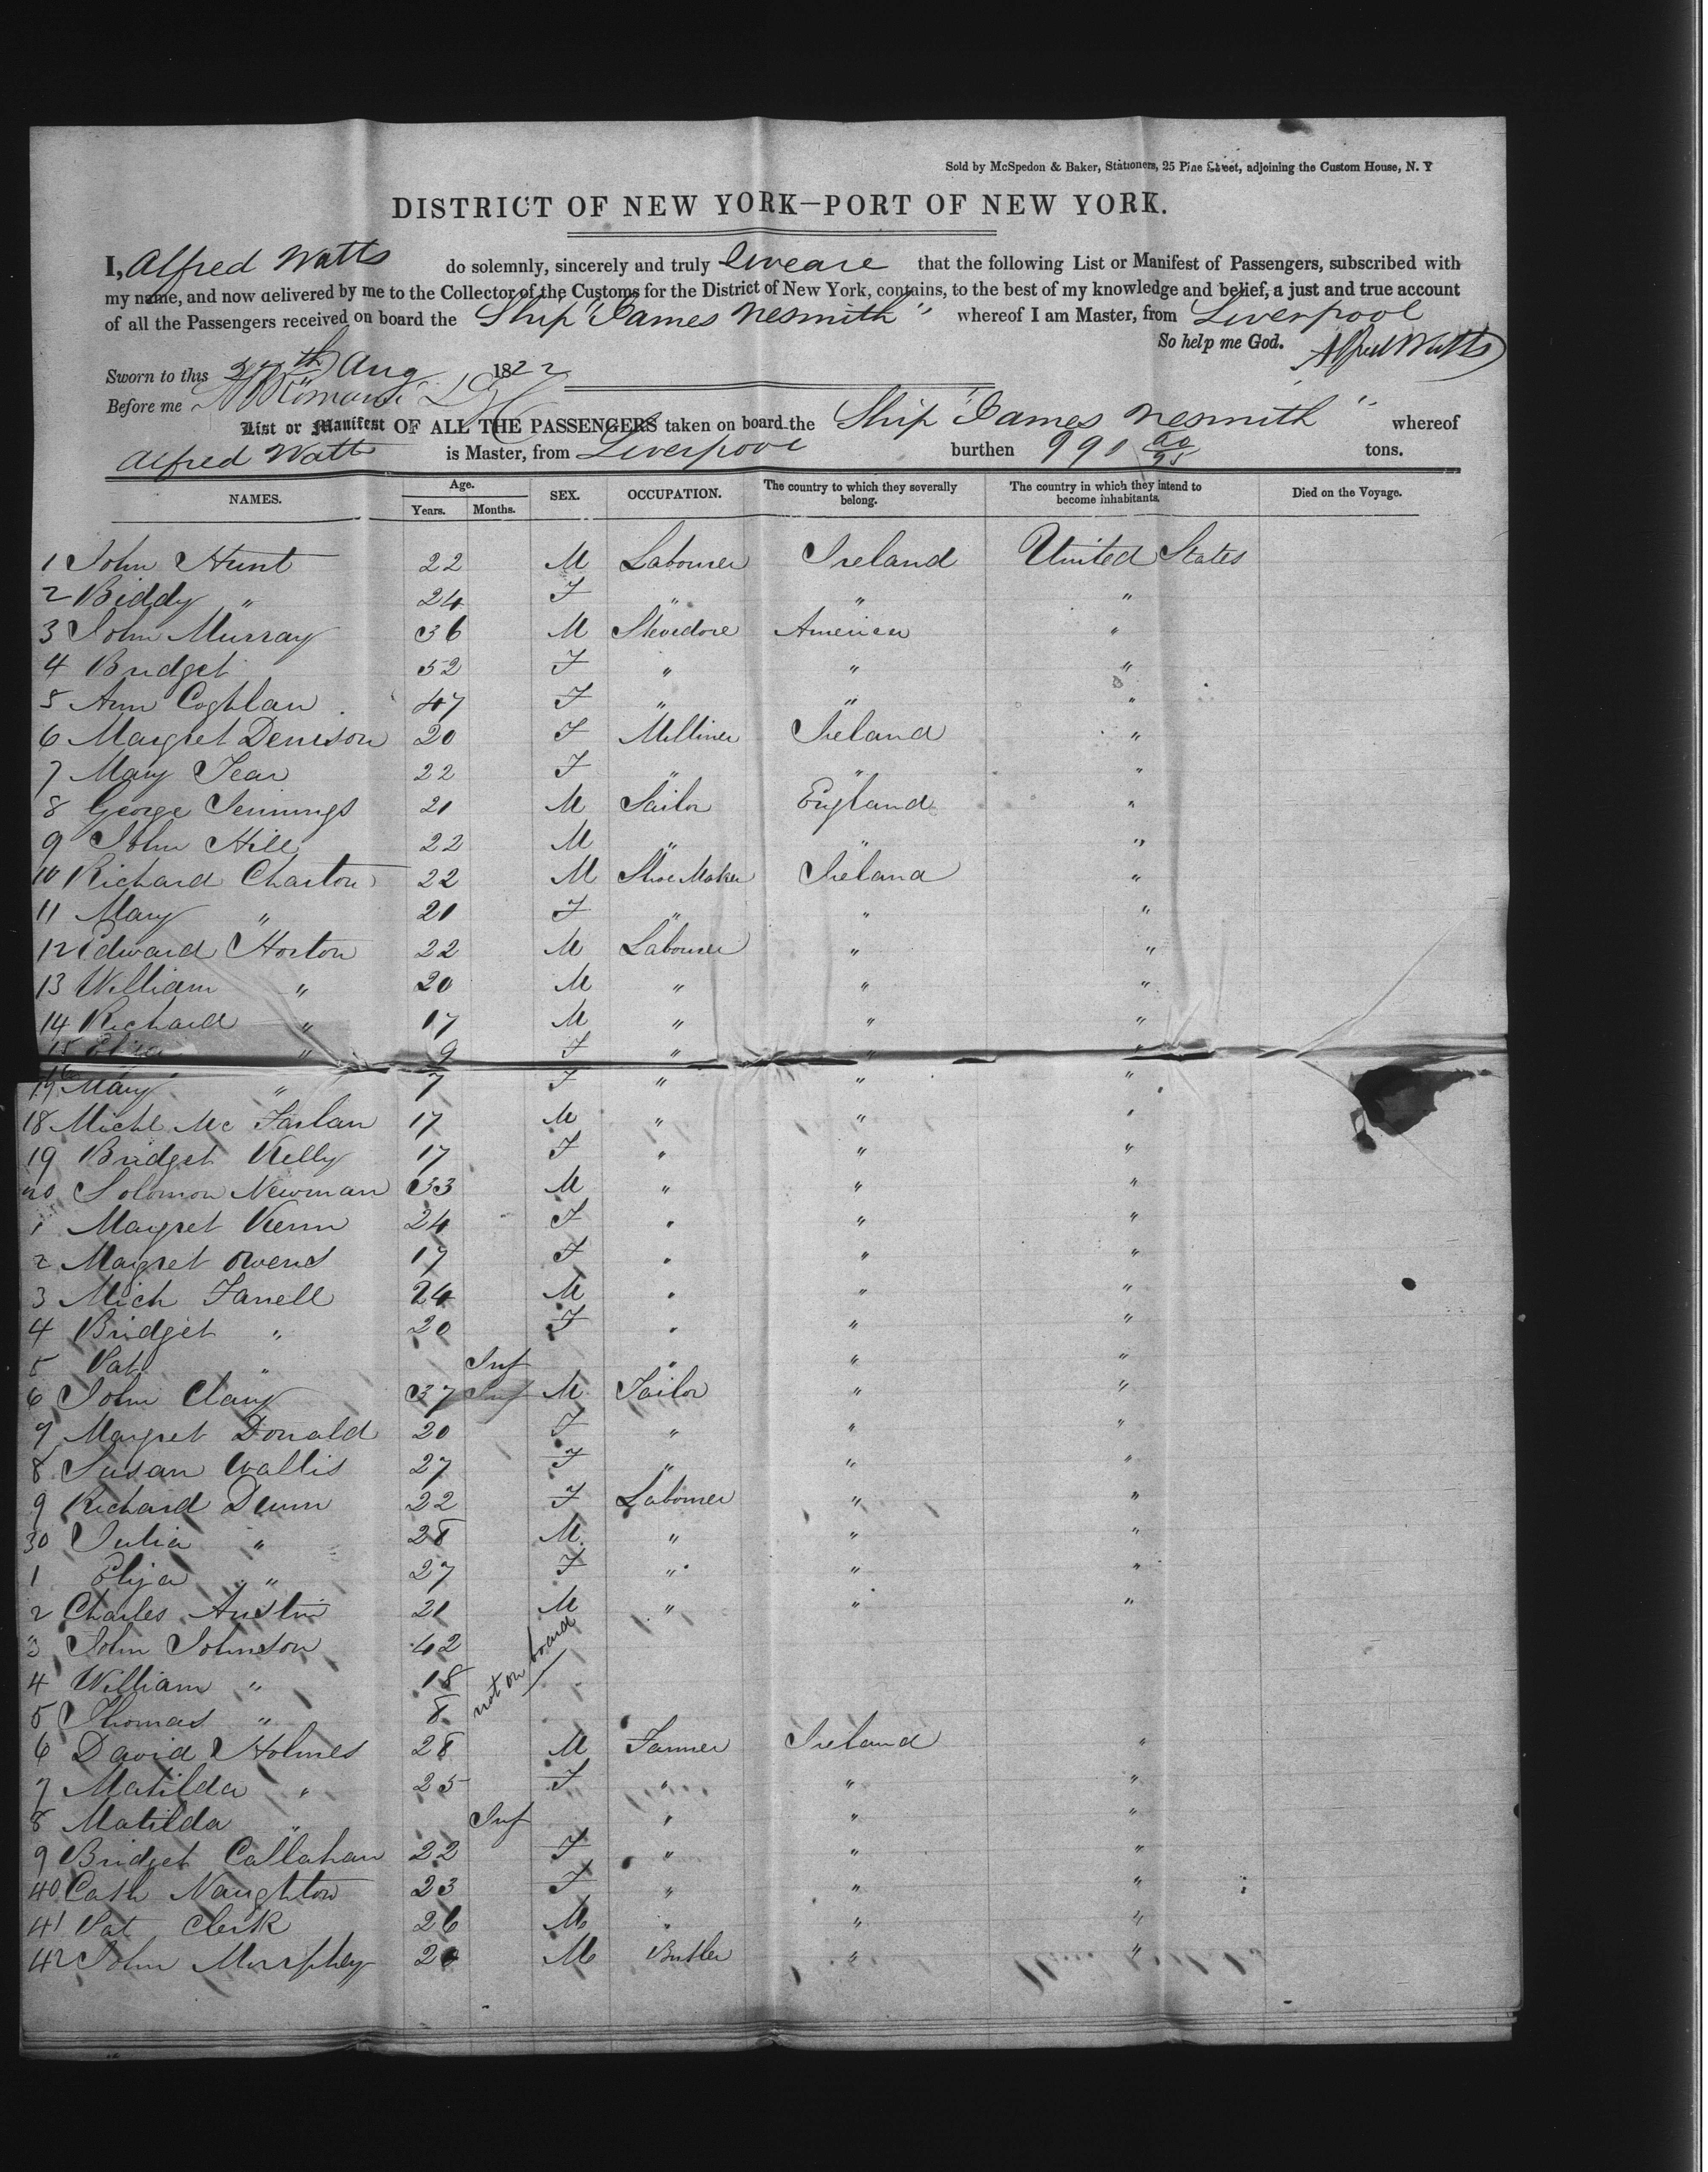 Sold by McSpedon & Baker, Stationers, 25 Pine Street, adjoining the Custom House, N. Y
DISTRICT OF NEW YORK—PORT OF NEW YORK.
I, Alfred Watts do solemnly, sincerely and truly sweare that the following List or Manifest of Passengers, subscribed with
my name, and now delivered by me to the Collector of the Customs for the District of New York, contains, to the best of my knowledge and belief, a just and true account
of all the Passengers received on board the Ship "James Nesmith" whereof I am Master, from Liverpool
So help me God. Alfred Watts
Sworn to this Aug 18
Before me
List or Manifest OF ALL THE PASSENGERS taken on board the Ship "James Nesmith" whereof
Alfred Watts is Master, from Liverpool burthen 990 tons.
NAMES. Age. Years. Months. SEX. OCCUPATION. The country to which they severally belong. The country in which they intend to become inhabitants. Died on the Voyage.
1 John Hunt 22 M Labourer Ireland United States
2 Biddy " 24 F " " "
3 John Murray 36 M Stevedore America "
4 Bridget 52 F " " "
5 Ann Coghlan 47 F " " "
6 Margret Denison 20 F Milliner Ireland "
7 Mary 22 F " " "
8 George Jennings 21 M Sailor England "
9 John Hill 22 M " " "
10 Richard Charton 22 M Shoe Maker Ireland "
11 Mary " 21 F " " "
12 Edward Horton 22 M Labourer " "
13 William " 20 M " " "
14 Richard " 17 M " " "
15 Eliza " 9 F " " "
Mary " 7 F " " "
18 Michl Mc Farlan 17 M " " "
19 Bridget Kelly 17 F " " "
20 Solomon Newman 33 M " " "
1 Margret 24 F " " "
2 Margret Owens 17 F " " "
3 Mich Farrell 24 M " " "
4 Bridget " 20 F " " "
5 Pat " Inf " " "
6 John Clary 37 Inf M Tailor " "
7 Margret Donald 20 F " " "
8 Susan Wallis 27 F " " "
9 Richard Dunn 22 F Labourer " "
30 Julia " 28 M " " "
1 Eliza " 27 F " " "
2 Charles Austin 21 M " " "
3 John Johnston 42 not on board
4 William " 18
5 Thomas " 8
6 David Holmes 28 M Farmer Ireland "
7 Matilda " 25 F " " "
8 Matilda " Inf " " "
9 Bridget Callahan 22 F " " "
40 Cath Naughton 23 F " " "
41 Pat Clerk 26 M " " "
42 John Murphey M Butler " "